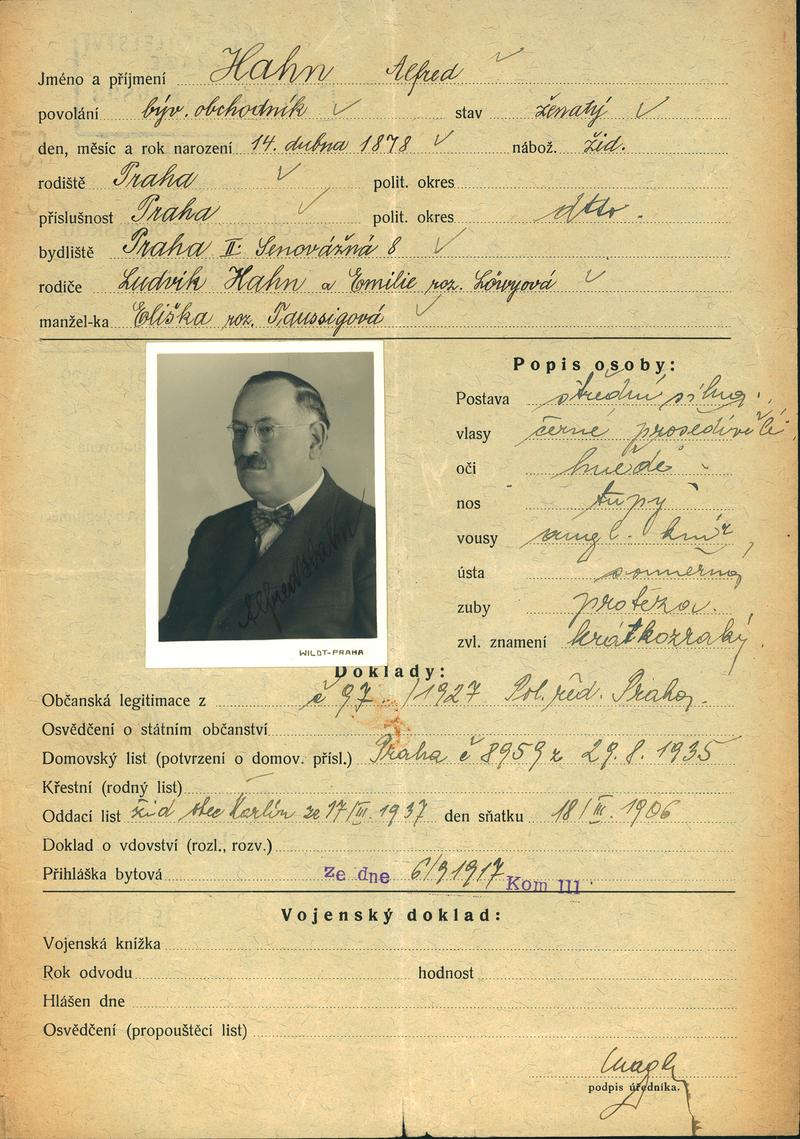 Jméno a příjmení Hahn Alfred
povolání býv. obchodník stav ženatý
den, měsíc a rok narození 14. dubna 1878 nábož. žid.
rodiště Praha polit. okres
příslušnost Praha polit. okres dtto.
bydliště Praha II. Senovážná 8
rodiče Ludvík Hahn a Emilie roz. Löwyová
manžel-ka Eliška roz. Taussigová
Popis osoby:
Postava střední silná.
vlasy černé prošedivělé
oči hnědé
nos tupý
vousy angl. knír
ústa souměrná
zuby protéza.
zvl. znamení krátkozraký
Alfred Hahn
WILDT-PRAHA
Doklady:
Občanská legitimace z č 97 /1927 Pol. řed. Praha.
Osvědčení o státním občanství
Domovský list (potvrzení o domov. přísl.) Praha č 8959 z 29.8.1935
Křestní (rodný list)
Oddací list žid obec Karlín ze 17/III. 1937 den sňatku 18/III. 1906
Doklad o vdovství (rozl., rozv.)
Přihláška bytová ze dne 6/9 1917 Kom III.
Vojenský doklad:
Vojenská knížka
Rok odvodu hodnost
Hlášen dne
Osvědčení (propouštěcí list)
podpis úředníka.